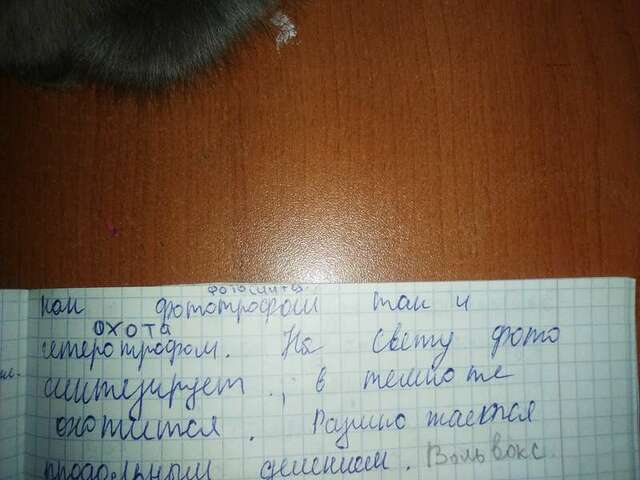 фотосинтез.
как фототрофом так и
охота
гетеротрофом. На свету фото
синтезирует ., в темноте
охотится . Размножается
продольным делением. Вольвокс